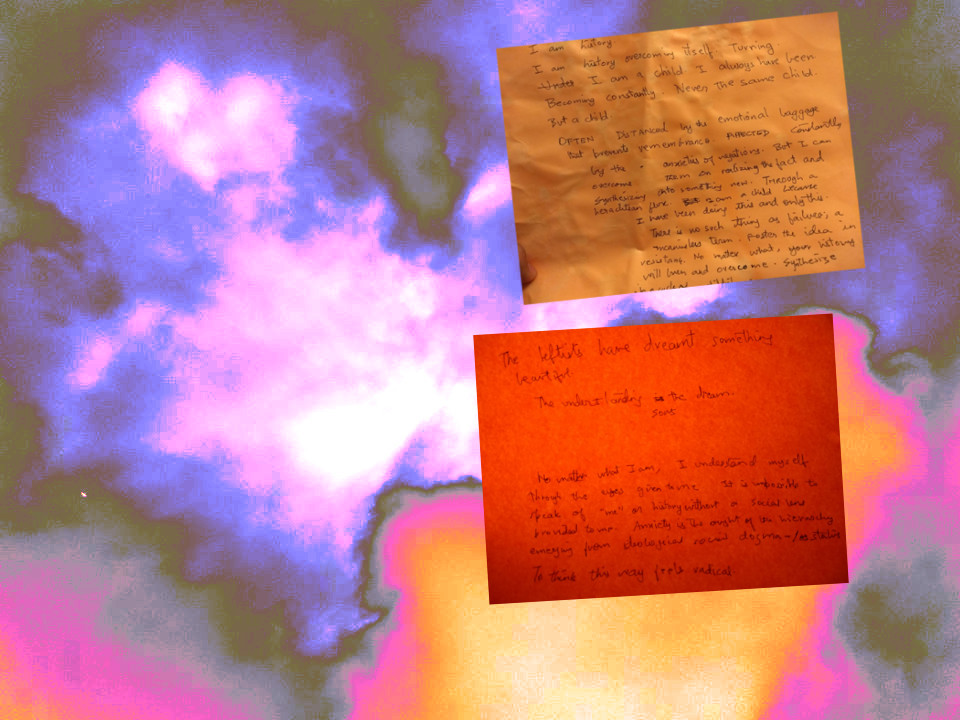 I am history
I am history overcoming itself. Turning
I am a child. I always have been
Becoming constantly. Never the same child.
But a child
OFTEN DISTANCED by the emotional baggage
that prevents remembrance. AFFECTED constantly
by the anxieties of negations. But I can
overcome them on realizing the fact and
synthesizing into something new. Through a
am a child because
I have been doing this and only this.
There is no such thing as failures, a
meaningless term. Foster the idea in
No matter what, your history
will live and overcome. Synthesize
The leftists have dreamt something
beautiful.
The understanding the dream.
sort
No matter what I am, I understand myself
through the eyes given to me. It is impossible to
speak of "me" or history without a social lens
branded to me. Anxiety is the
emerging from ideological dogma
To think this way feels radical.